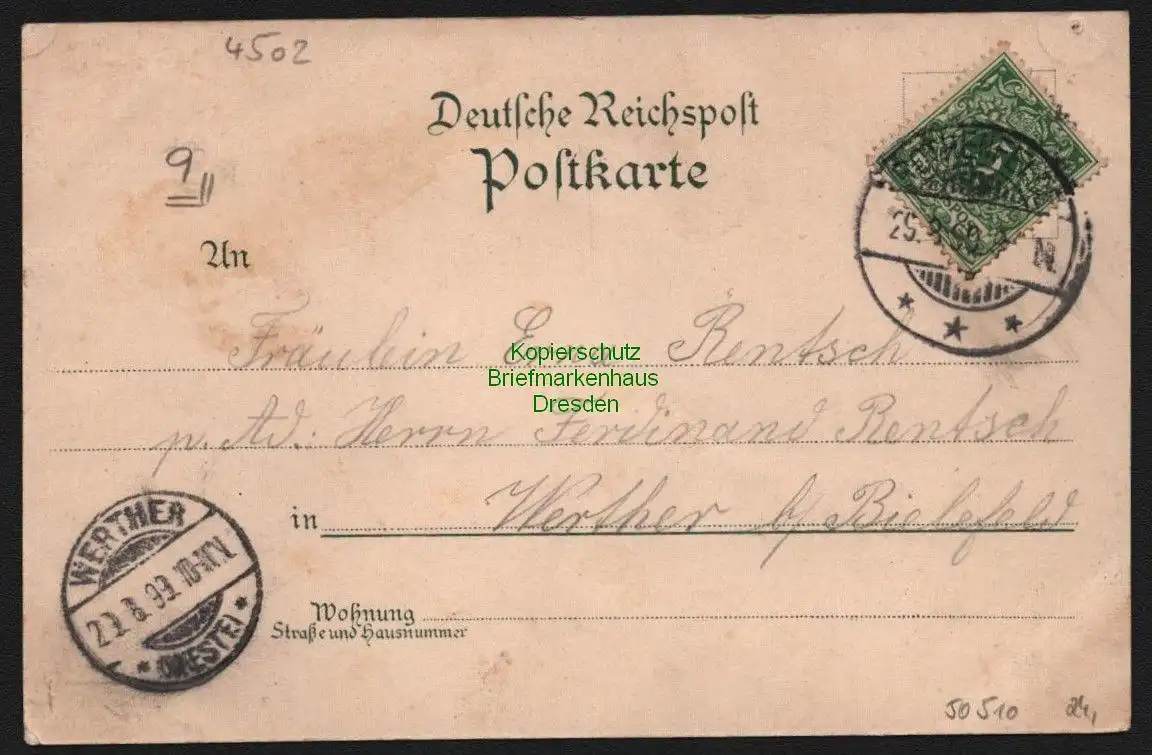 4502
Deutsche Reichspost
Postkarte
9
An
5
25. 8.
N.
Fräulein Erna Rentsch
Kopierschutz
Briefmarkenhaus
Dresden
p. Ad: Herrn Ferdinand Rentsch
in Werther b/ Bielefeld
WERTHER
10-11V.
(WESTF)
Wohnung
Straße und Hausnummer
50510 24,